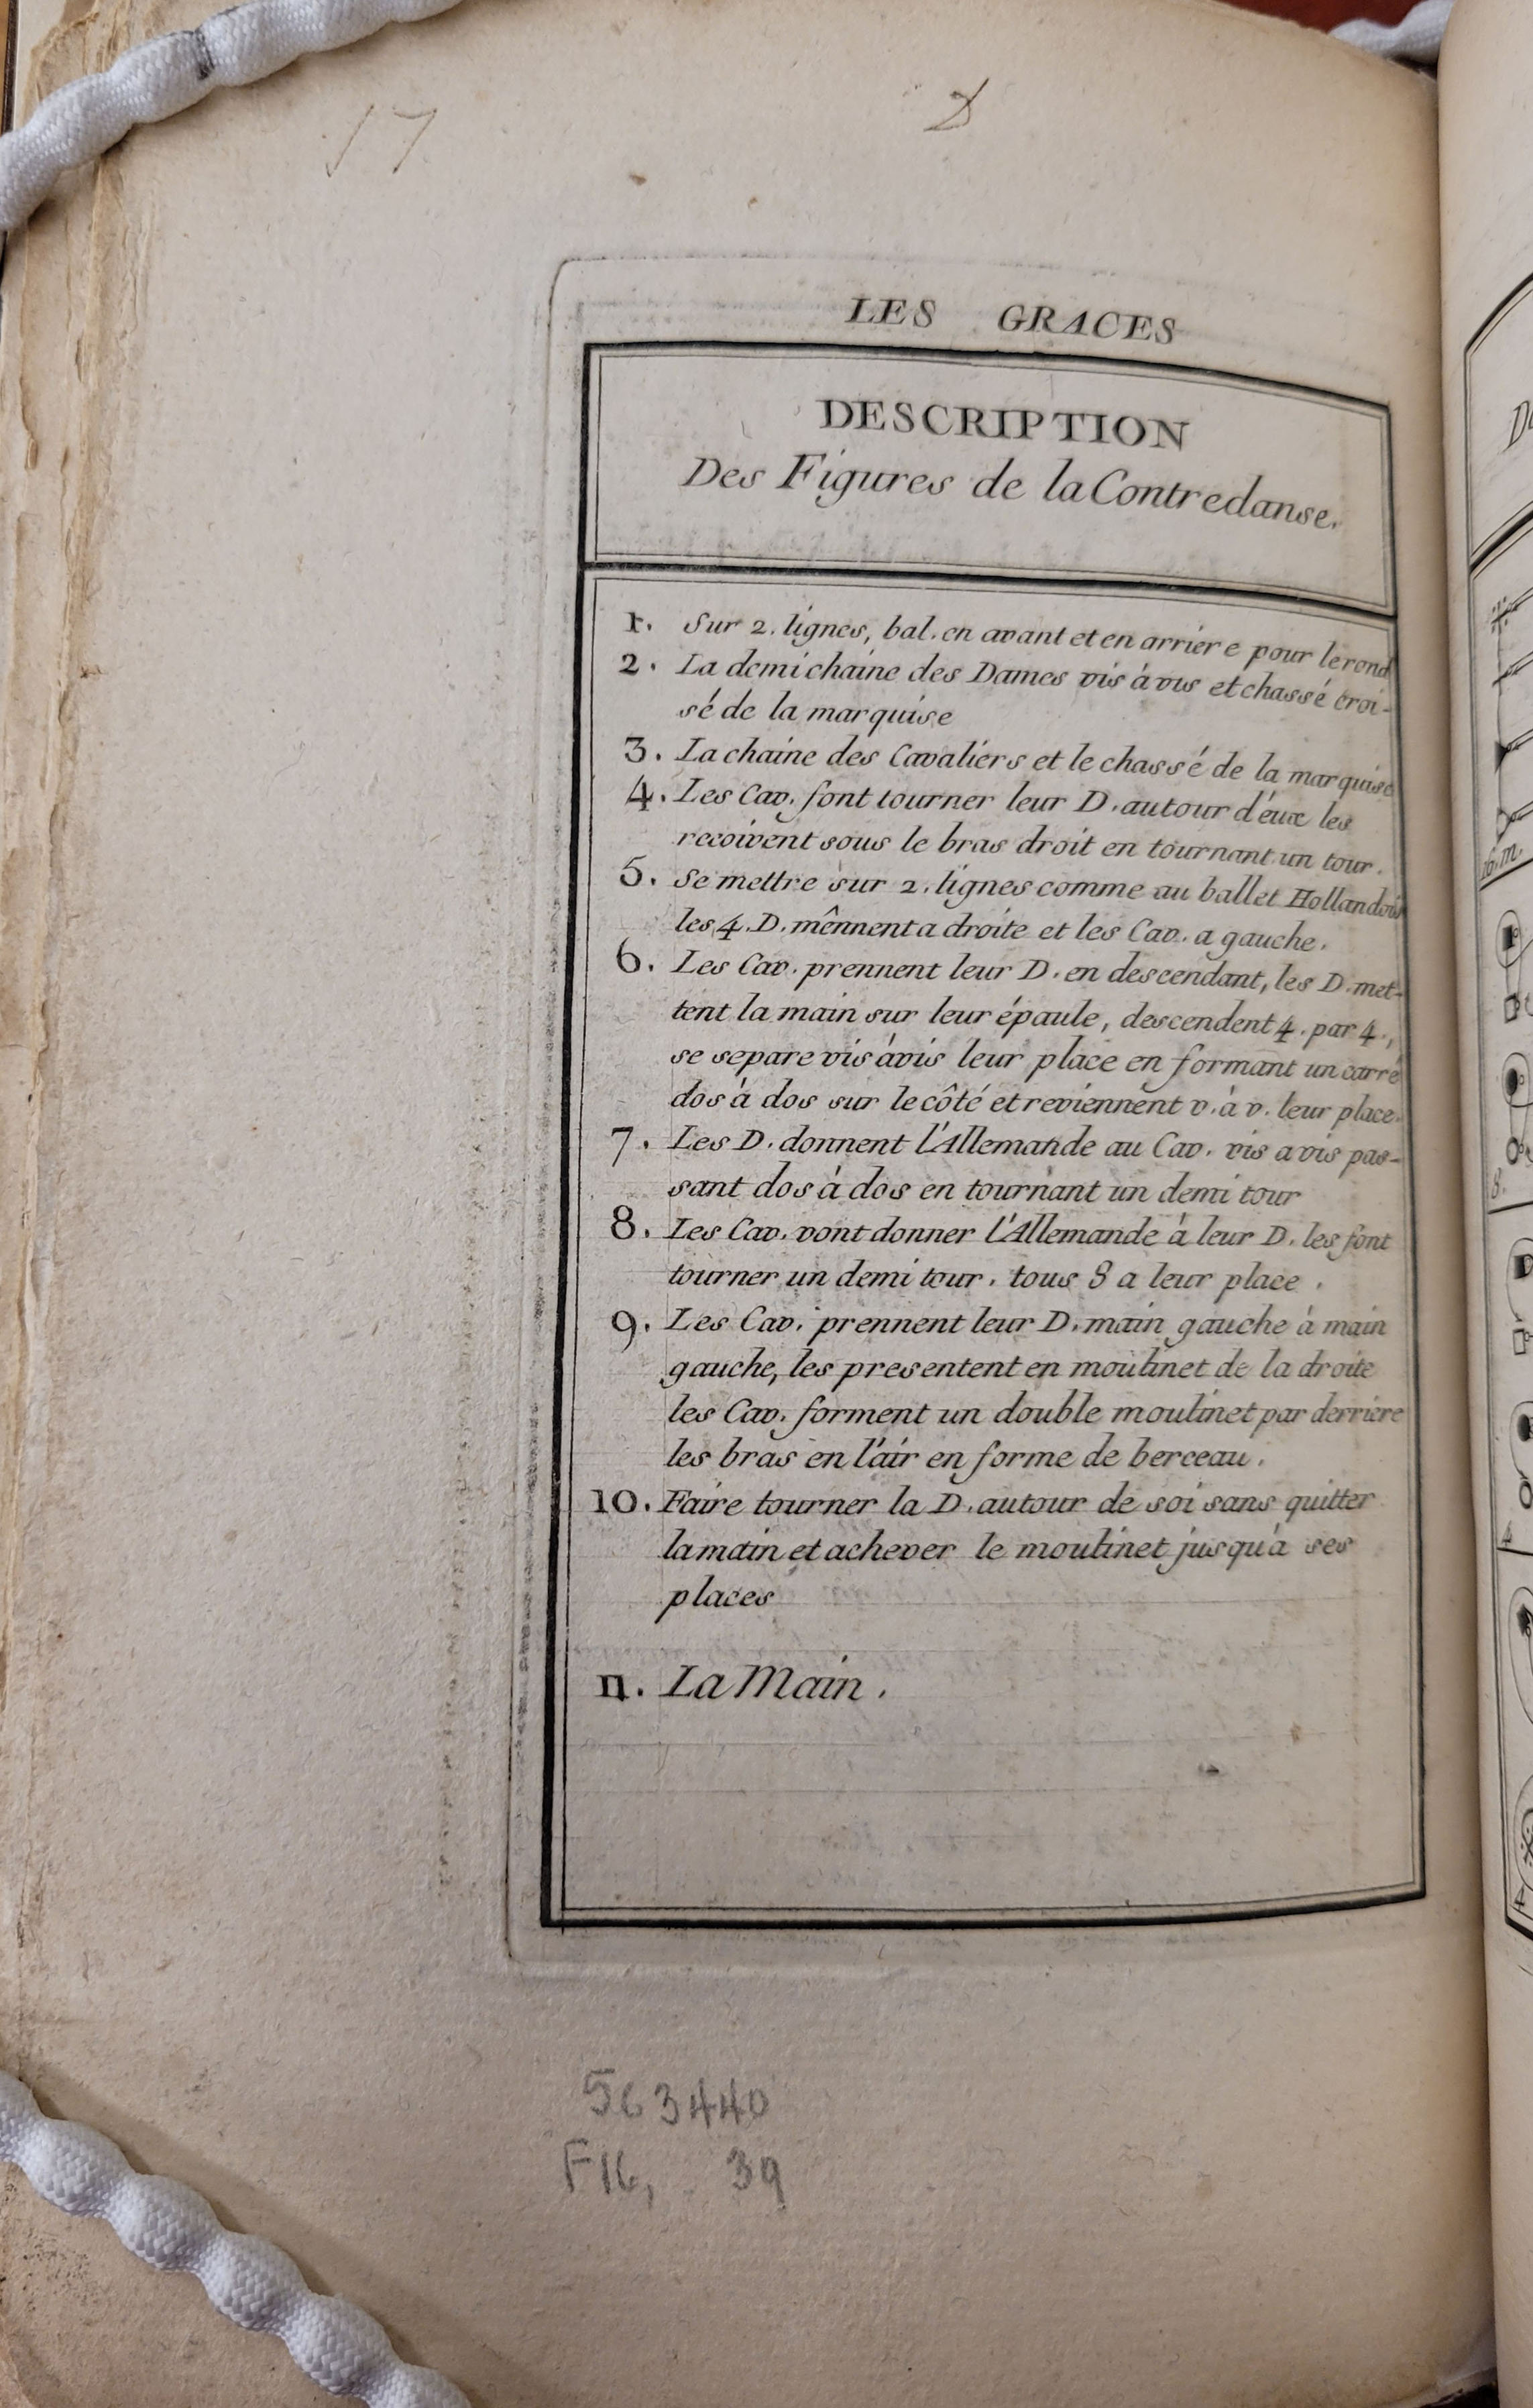 17
LES GRACES
DESCRIPTION
Des Figures de la Contredanse.
1. Sur 2. lignes, bal. en avant et en arriere pour le rond
2. La demi chaine des Dames vis à vis et chassé croi-
sé de la marquise
3. La chaine des Cavaliers et le chassé de la marquise
4. Les Cav. font tourner leur D. autour d'eux les
recoivent sous le bras droit en tournant un tour.
5. Se mettre sur 2. lignes comme au ballet Hollandois
les 4. D. mênnent a droite et les Cav. a gauche.
6. Les Cav. prennent leur D. en descendant, les D. met-
tent la main sur leur épaule, descendent 4. par 4.,
se separe vis àvis leur place en formant un carré
dos à dos sur le côté et reviennent v. à v. leur place.
7. Les D. donnent l'Allemande au Cav. vis a vis pas-
sant dos à dos en tournant un demi tour
8. Les Cav. vont donner l'Allemande à leur D. les font
tourner un demi tour. tous 8 a leur place.
9. Les Cav. prennent leur D. main gauche à main
gauche, les presentent en moulinet de la droite
les Cav. forment un double moulinet par derriere
les bras en l'air en forme de berceau.
10. Faire tourner la D. autour de soi sans quitter
la main et achever le moulinet jusqu'a ses
places
11. La Main.
563440
F16, 39